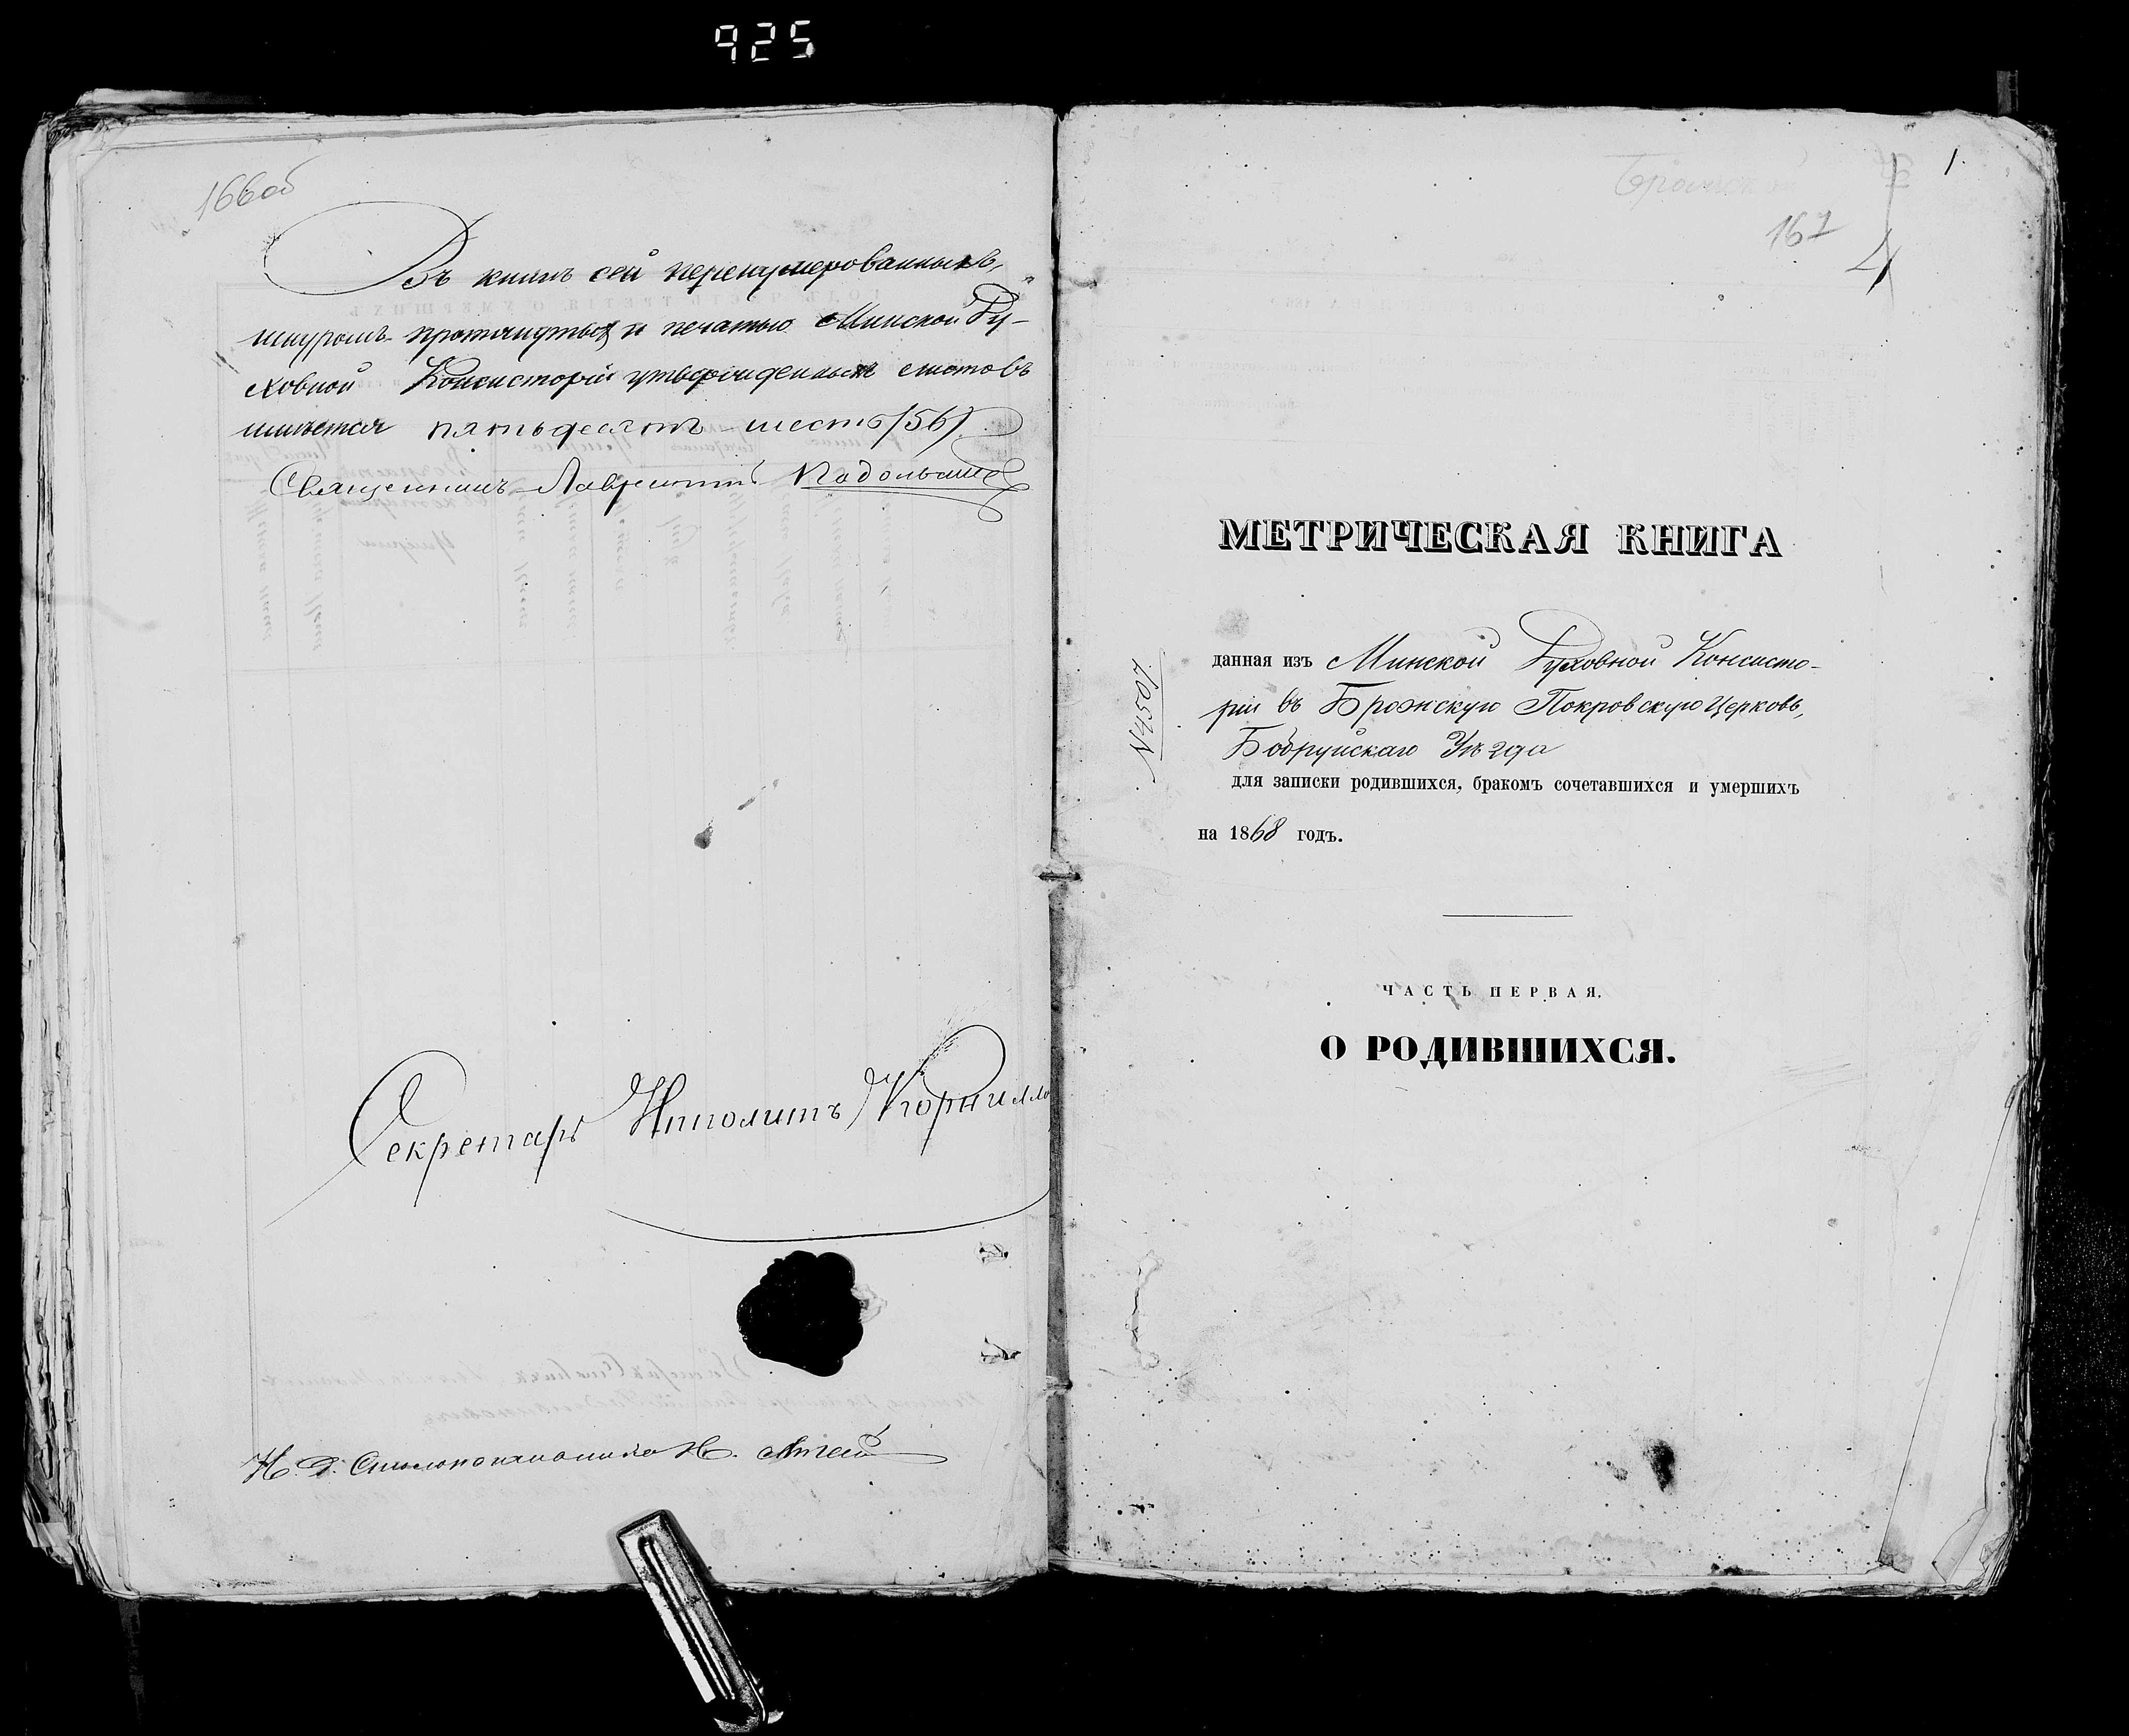 925
166об
Въ книгѣ сей перенумерованныхъ,
шнуромъ протянутыхъ и печатью Минской Ду-
ховной Консисторіи утвержденныхъ листовъ
имѣется пятьдесятъ шесть /56/
Священникъ Лаврентій
Секретарь Ипполитъ Корнилло
И. д. Столоначальника Н.
1.
167
4
МЕТРИЧЕСКАЯ КНИГА
данная изъ Минской Духовной Консисто-
ріи въ Брожскую Покровскую Церковь,
Бобруйскаго Уѣзда
для записки родившихся, бракомъ сочетавшихся и умершихъ
на 1868 годъ.
№4507
ЧАСТЬ ПЕРВАЯ.
О РОДИВШИХСЯ.